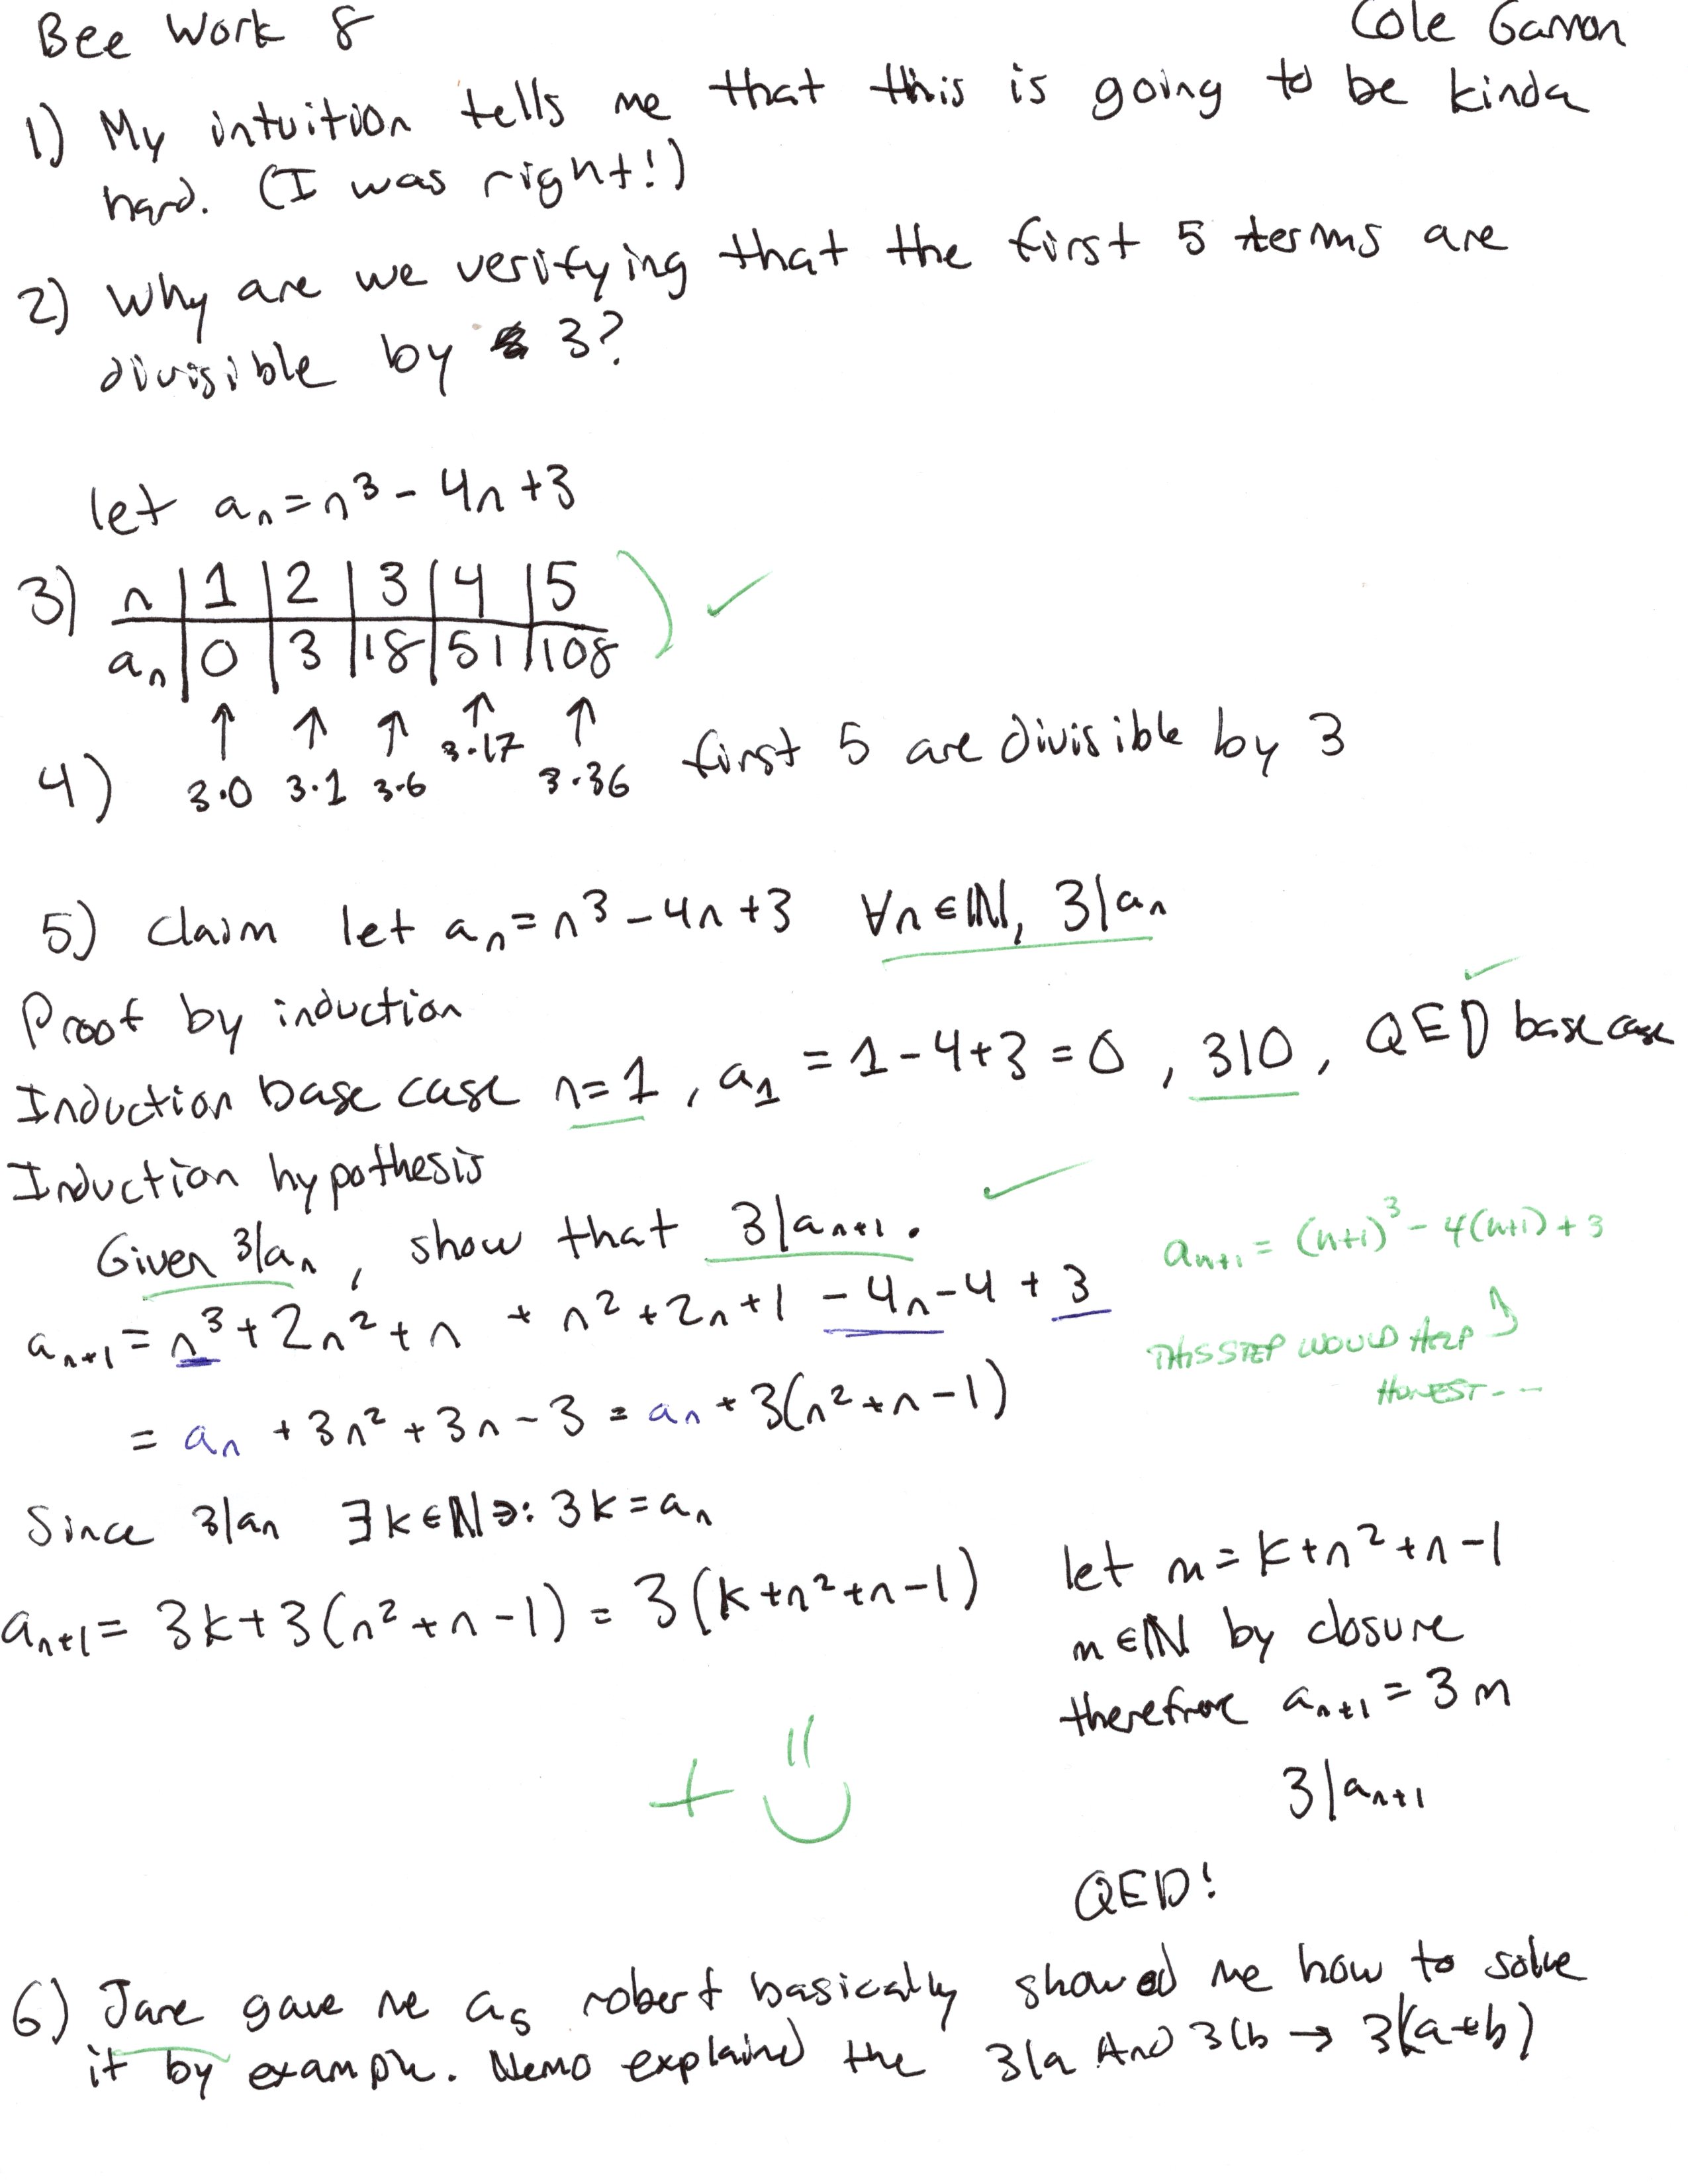 Bee Work 8
Cole Gannon
1) My intuition tells me that this is going to be kinda
hard. (I was right!)
2) Why are we verifying that the first 5 terms are
divisible by 3?
let aₙ = n³ - 4n + 3
3) n | 1 | 2 | 3 | 4 | 5 ✓
aₙ | 0 | 3 | 18 | 51 | 108
↑ ↑ ↑ ↑ ↑
4) 3·0 3·1 3·6 3·17 3·36 first 5 are divisible by 3
5) Claim let aₙ = n³ - 4n + 3 ∀n∈ℕ, 3|aₙ
Proof by induction
Induction base case n = 1, a₁ = 1 - 4 + 3 = 0, 3|0, QED base case ✓
Induction hypothesis
Given 3|aₙ, show that 3|aₙ₊₁. ✓
aₙ₊₁ = (n+1)³ - 4(n+1) + 3
THIS STEP WOULD HELP
HONEST--
aₙ₊₁ = n³ + 2n² + n + n² + 2n + 1 - 4n - 4 + 3
= aₙ + 3n² + 3n - 3 = aₙ + 3(n² + n - 1)
Since 3|aₙ ∃k∈ℕ∋: 3k = aₙ
aₙ₊₁ = 3k + 3(n² + n - 1) = 3(k + n² + n - 1)
let m = k + n² + n - 1
m∈ℕ by closure
therefore aₙ₊₁ = 3m
3|aₙ₊₁
+
QED!
6) Jane gave me a₅ robert basically showed me how to solve
it by example. Nemo explained the 3|a And 3|b → 3|(a+b)